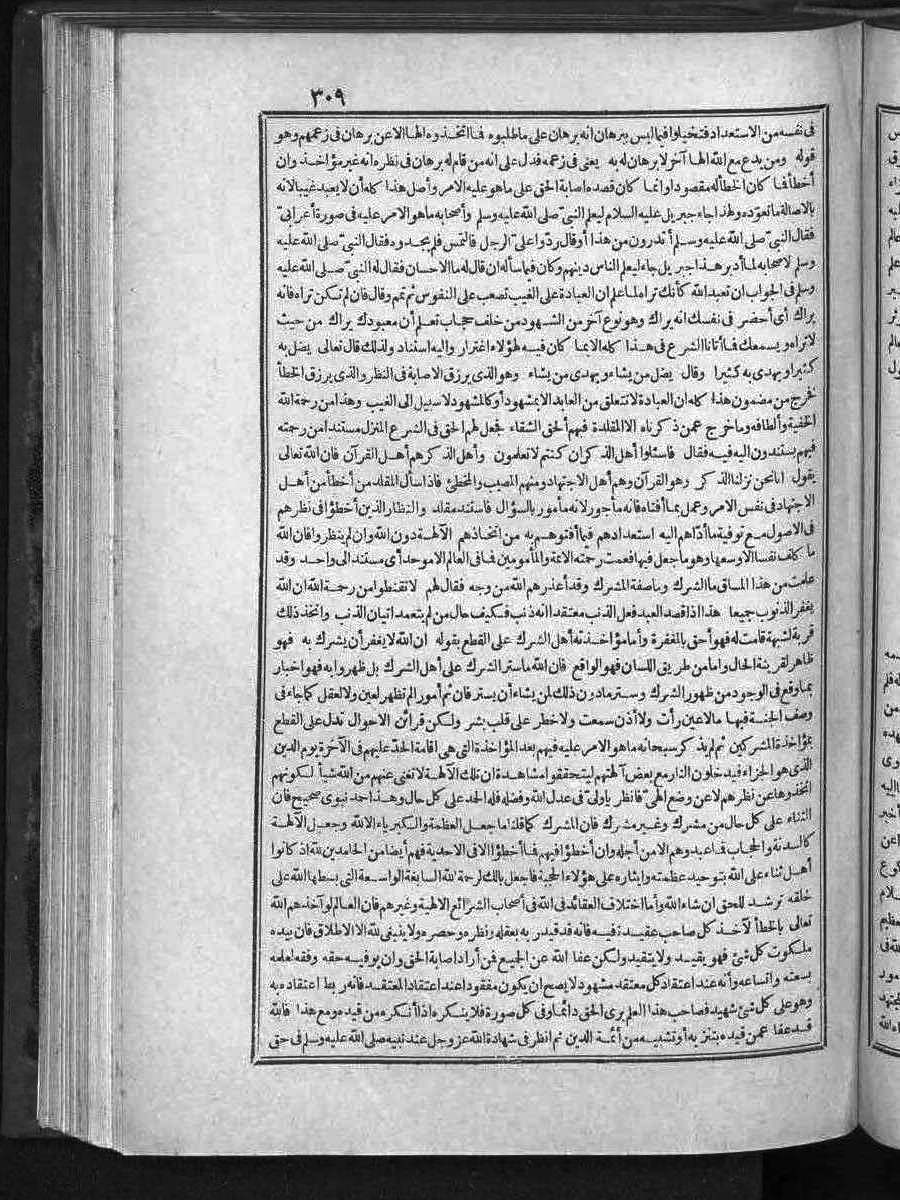 ٣٠٩
فى نفسه من الاستعداد فتخيلوا فيما ليس ببرهان انه برهان على ما طلبوه فما اتخذوه الها الا عن برهان فى زعمهم وهو
قوله ومن يدع مع الله الها آخر لا برهان له به يعنى فى زعمه فدل على انه من قام له برهان فى نظره انه غير مؤاخذ وان
أخطأ فما كان الخطأ له مقصودا وانما كان قصده اصابة الحق على ما هو عليه الامر وأصل هذا كله أن لا يعبد غيبا لانه
بالاصالة ما تعوّده ولهذا جاء جبريل عليه السلام ليعلم النبىّ صلى الله عليه وسلم وأصحابه ما هو الامر عليه فى صورة أعرابىّ
فقال النبىّ صلى الله عليه وسلم أتدرون من هذا أو قال ردّوا علىّ الرجل فالتمس فلم يجدوه فقال النبىّ صلى الله عليه
وسلم لاصحابه لما أدبر هذا جبريل جاء ليعلم الناس دينهم وكان فيما سأله ان قال له ما الاحسان فقال له النبىّ صلى الله عليه
وسلم فى الجواب ان تعبد الله كأنك تراه لما علم ان العبادة على الغيب تصعب على النفوس ثم تمم وقال فان لم تكن تراه فانه
يراك أى أحضر فى نفسك انه يراك وهو نوع آخر من الشهود من خلف حجاب تعلم أن معبودك يراك من حيث
لا تراه ويسمعك فما أتانا الشرع فى هذا كله الا بما كان فيه لهؤلاء اغترار واليه استناد ولذلك قال تعالى يضل به
كثيرا ويهدى به كثيرا وقال يضل من يشاء ويهدى من يشاء وهو الذى يرزق الاصابة فى النظر والذى يرزق الخطأ
فخرج من مضمون هذا كله ان العبادة لا تتعلق من العابد الا بمشهود أو كالمشهود لا سبيل الى الغيب وهذا من رحمة الله
الخفية وألطافه وما خرج عمن ذكرناه الا المقلدة فبهم ألحق الشقاء فجعل لهم الحق فى الشرع المنزل مستندا من رحمته
فيهم يستندون اليه فيه فقال فاسئلوا أهل الذكر ان كنتم لا تعلمون وأهل الذكر هم أهل القرآن فان الله تعالى
يقول انا نحن نزلنا الذكر وهو القرآن وهم أهل الاجتهاد ومنهم المصيب والمخطئ فاذا سأل المقلد من أخطأ من أهل
الاجتهاد فى نفس الامر وعمل بما أفتاه فانه مأجور لانه مأمور بالسؤال فاستند مقلد والنظار الذين أخطؤا فى نظرهم
فى الاصول مع توفية ما أدّاهم اليه استعدادهم فيما أفتوهم به من اتخاذهم الآلهة دون الله وان لم ينظروا فان الله
ما كلف نفسا الا وسعها وهو ما جعل فيها فعمت رحمته الائمة والمأمومين فما فى العالم الا موحد أى مستند الى واحد وقد
علمت من هذا المساق ما الشرك وما صفة المشرك وقد أعذرهم الله من وجه فقال لهم لا تقنطوا من رحمة الله ان الله
يغفر الذنوب جميعا هذا اذا قصد العبد فعل الذنب معتقدا انه ذنب فكيف حال من لم يتعمد اتيان الذنب واتخذ ذلك
قربة لشبهة قامت له فهو أحق بالمغفرة وأما مؤاخذته أهل الشرك على القطع بقوله ان الله لا يغفر أن يشرك به فهو
ظاهر لقرينة الحال وأما من طريق اللسان فهو الواقع فان الله ما ستر الشرك على أهل الشرك بل ظهروا به فهو اخبار
بما وقع فى الوجود من ظهور الشرك وستر ما دون ذلك لمن يشاء أن يستر فان ثم أمورا لم تظهر لعين ولا لعقل كما جاء فى
وصف الجنة فيها ما لا عين رأت ولا أذن سمعت ولا خطر على قلب بشر ولكن قرائن الاحوال تدل على القطع
بمؤاخذة المشركين ثم لم يذكر سبحانه ما هو الامر عليه فيهم بعد المؤاخذة التى هى اقامة الحدّ عليهم فى الآخرة يوم الدين
الذى هو الجزاء فيدخلون النار مع بعض آلهتهم ليتحققوا مشاهدة ان تلك الآلهة لا تغنى عنهم من الله شيأ لكونهم
اتخذوها عن نظرهم لا عن وضع الهىّ فانظر يا ولىّ فى عدل الله وفضله فله الحمد على كل حال وهذا حمد نبوى صحيح فان
الثناء على كل حال من مشرك وغير مشرك فان المشرك كما قلنا ما جعل العظمة والكبرياء الا لله وجعل الآلهة
كالسدنة والحجاب فما عبدوهم الا من أجله وان أخطؤا فيهم فما أخطؤا الا فى الاحدية فهم أيضا من الحامدين لله اذ كانوا
أهل ثناء على الله بتوحيد عظمته وايثاره على هؤلاء الحجبة فاجعل بالك لرحمة الله السابغة الواسعة التى بسطها الله على
خلقه ترشد للحق ان شاء الله وأما اختلاف العقائد فى الله فى أصحاب الشرائع الالهية وغيرهم فان العالم لو آخذهم الله
تعالى بالخطأ لآخذ كل صاحب عقيدة فيه فانه قد قيد ربه بعقله ونظره وحصره ولا ينبغى لله الا الاطلاق فان بيده
ملكوت كل شئ فهو يقيد ولا يتقيد ولكن عفا الله عن الجميع فمن أراد اصابة الحق وان يوفيه حقه وفقه لعلمه
بسعته واتساعه وأنه عند اعتقاد كل معتقد مشهود لا يصح ان يكون مفقودا عند اعتقاد المعتقد فانه ربط اعتقاده به
وهو على كل شئ شهيد فصاحب هذا العلم يرى الحق دائما وفى كل صورة فلا ينكره اذا أنكره من قيده ومع هذا فالله
قد عفا عمن قيده بتنزيه أو تشبيه من أئمة الدين ثم انظر فى شهادة الله عز وجل عند نبيه صلى الله عليه وسلم فى حق